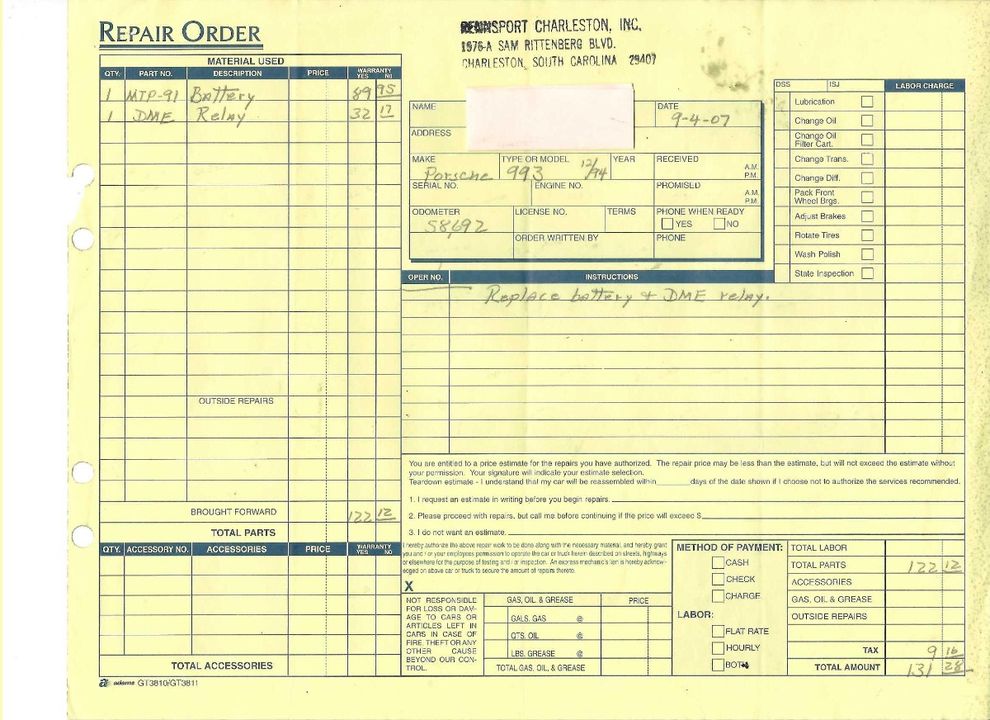 REPAIR ORDER
RENNSPORT CHARLESTON, INC.
1976-A SAM RITTENBERG BLVD.
CHARLESTON, SOUTH CAROLINA 29407
MATERIAL USED
QTY. PART NO. DESCRIPTION PRICE WARRANTY YES NO
1 MTP-91 Battery 89 95
1 DME Relay 32 17
OUTSIDE REPAIRS
BROUGHT FORWARD 122 12
TOTAL PARTS
QTY. ACCESSORY NO. ACCESSORIES PRICE WARRANTY YES NO
TOTAL ACCESSORIES
adams GT3810/GT3811
NAME DATE 9-4-07
ADDRESS
MAKE Porsche TYPE OR MODEL 993 12/94 YEAR RECEIVED A.M. P.M.
SERIAL NO. ENGINE NO. PROMISED A.M. P.M.
ODOMETER 58692 LICENSE NO. TERMS PHONE WHEN READY YES NO
ORDER WRITTEN BY PHONE
DSS ISJ LABOR CHARGE
Lubrication
Change Oil
Change Oil Filter Cart.
Change Trans.
Change Diff.
Pack Front Wheel Brgs.
Adjust Brakes
Rotate Tires
Wash Polish
State Inspection
OPER NO. INSTRUCTIONS
Replace battery + DME relay.
You are entitled to a price estimate for the repairs you have authorized. The repair price may be less than the estimate, but will not exceed the estimate without
your permission. Your signature will indicate your estimate selection.
Teardown estimate - I understand that my car will be reassembled within days of the date shown if I choose not to authorize the services recommended.
1. I request an estimate in writing before you begin repairs.
2. Please proceed with repairs, but call me before continuing if the price will exceed $
3. I do not want an estimate.
I hereby authorize the above repair work to be done along with the necessary material, and hereby grant
you and / or your employees permission to operate the car or truck herein described on streets, highways
or elsewhere for the purpose of testing and / or inspection. An express mechanic's lien is hereby acknowl-
edged on above car or truck to secure the amount of repairs thereto.
X
NOT RESPONSIBLE
FOR LOSS OR DAM-
AGE TO CARS OR
ARTICLES LEFT IN
CARS IN CASE OF
FIRE, THEFT OR ANY
OTHER CAUSE
BEYOND OUR CON-
TROL.
GAS, OIL & GREASE PRICE
GALS. GAS @
QTS. OIL @
LBS. GREASE @
TOTAL GAS, OIL, & GREASE
METHOD OF PAYMENT:
CASH
CHECK
CHARGE
LABOR:
FLAT RATE
HOURLY
BOTH
TOTAL LABOR
TOTAL PARTS 122 12
ACCESSORIES
GAS, OIL & GREASE
OUTSIDE REPAIRS
TAX 9 16
TOTAL AMOUNT 131 28